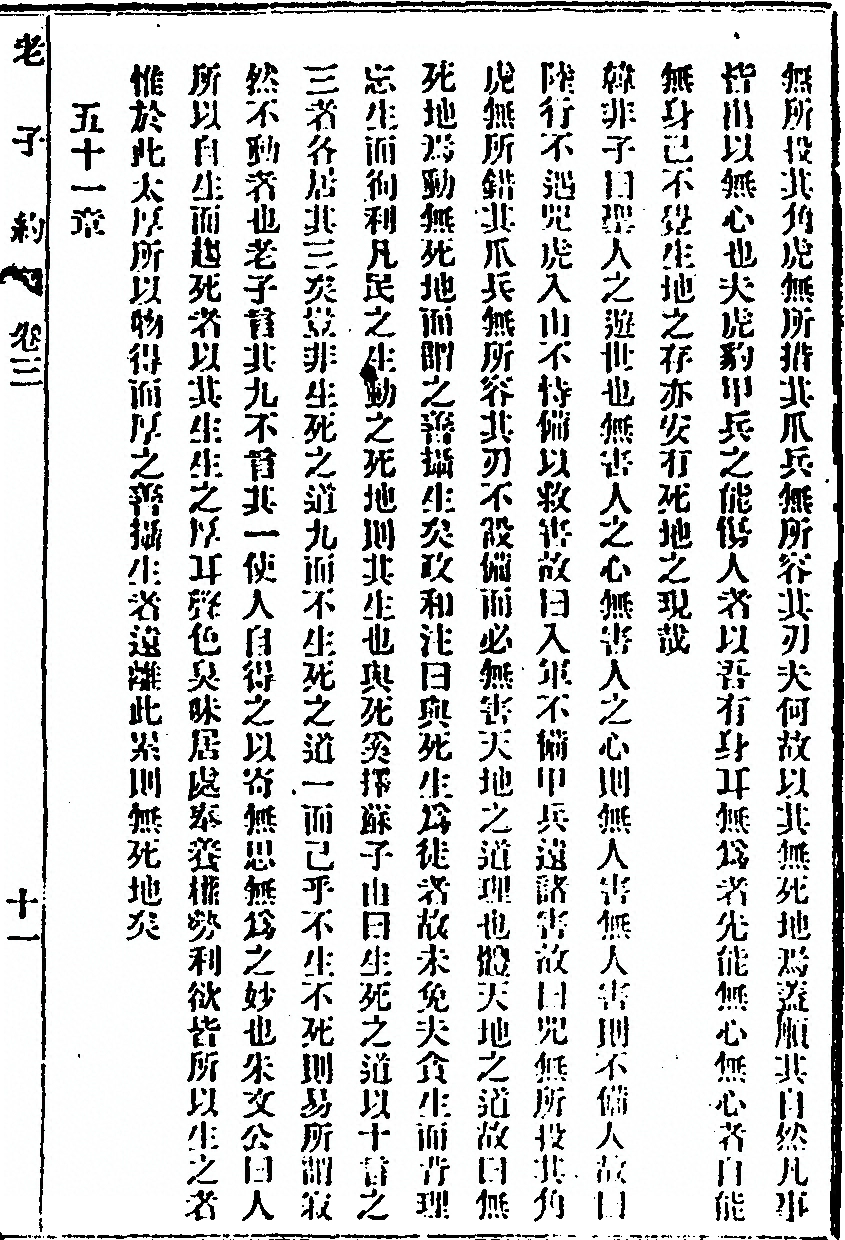 無所投其角虎無所措其爪兵無所容其刃夫何故以其無死地焉蓋順其自然凡事
皆出以無心也夫虎豹甲兵之能傷人者以吾有身耳無爲者先能無心無心者自能
無身已不覺生地之存亦安有死地之現哉
韓非子曰聖人之遊世也無害人之心無害人之心則無人害無人害則不備人故曰
陸行不遇兕虎入山不恃備以救害故曰入軍不備甲兵遠諸害故曰兕無所投其角
虎無所錯其爪兵無所容其刃不設備而必無害天地之道理也體天地之道故曰無
死地焉動無死地而謂之善攝生矣政和注曰與死生爲徒者故未免夫貪生而背理
忘生而徇利凡民之生動之死地則其生也與死奚擇蘇子由曰生死之道以十言之
三者各居其三矣豈非生死之道九而不生死之道一而已乎不生不死則易所謂寂
然不動者也老子言其九不言其一使人自得之以寄無思無爲之妙也朱文公曰人
所以自生而趨死者以其生生之厚耳聲色臭味居處奉養權勢利欲皆所以生之者
惟於此太厚所以物得而厚之善攝生者遠離此累則無死地矣
五十一章
老子約 卷三 十一